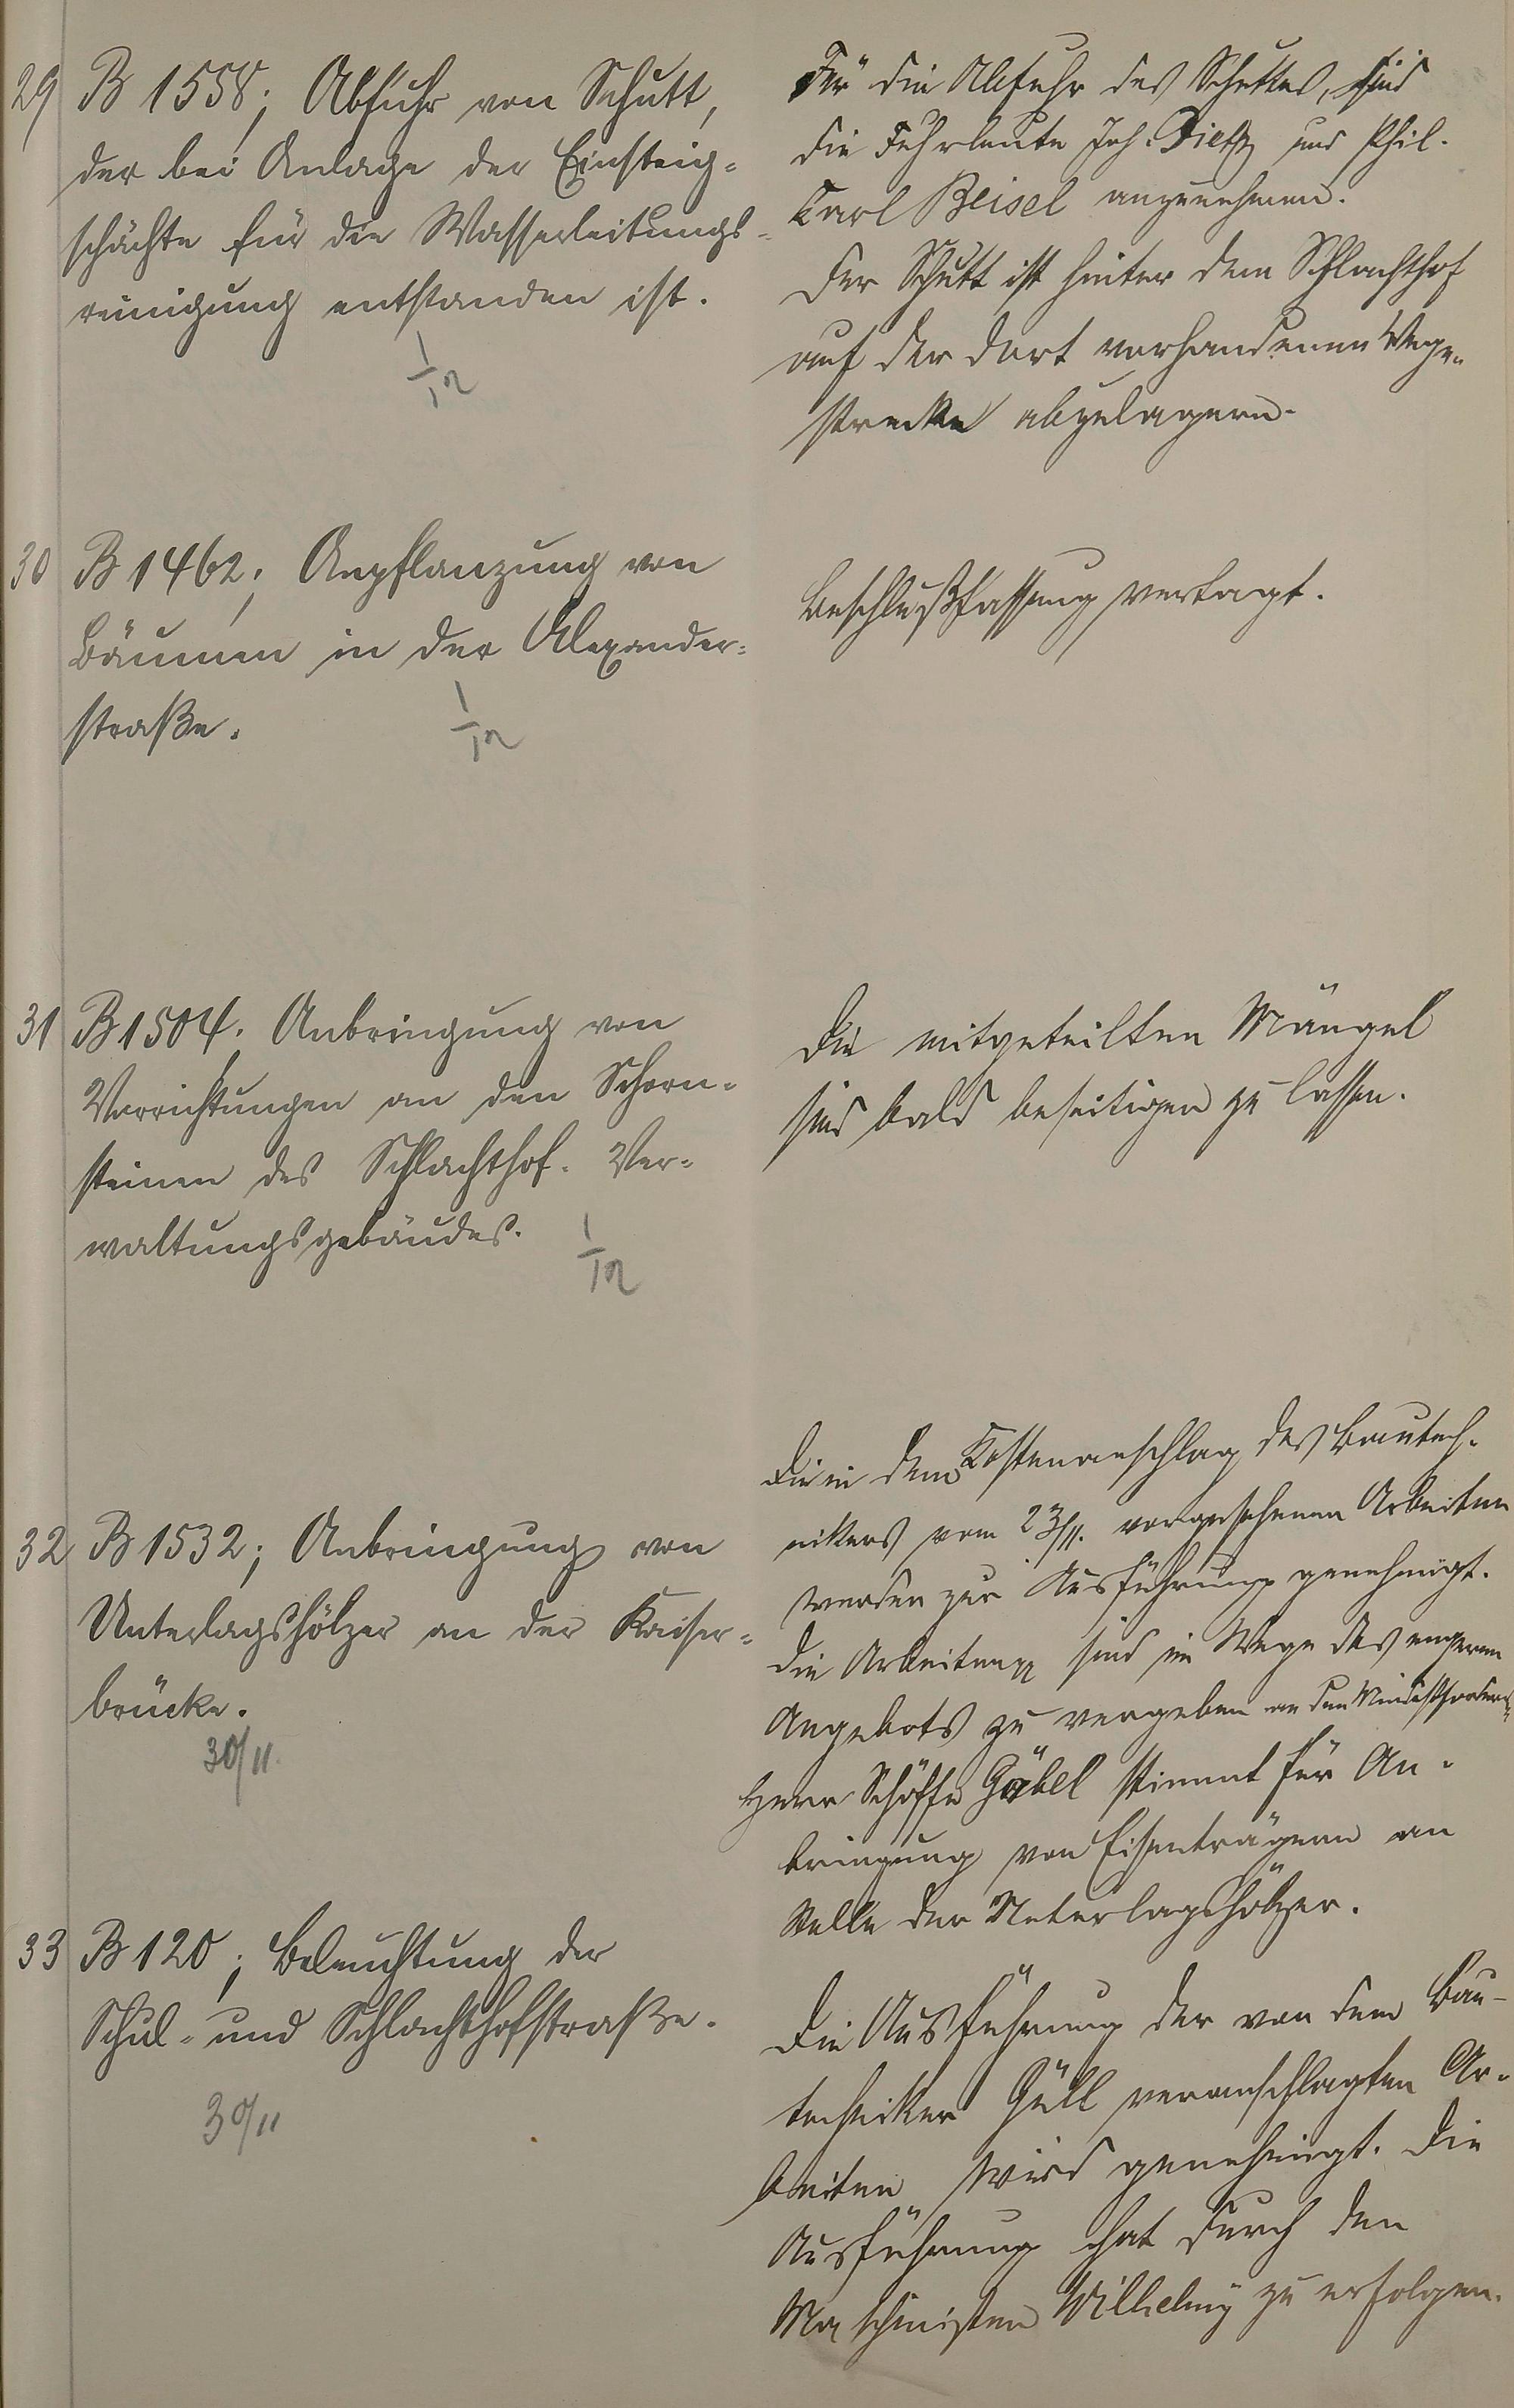 29
B 1558; Abfuhr von Schutt,
der bei Anlage der Einsteig-
schächte für die Wasserleitungs-
reinigung entstanden ist.
1/12
Für die Abfuhr des Schuttes, sind
die Fuhrleute Joh. Dietz und Phil.
Carl Beisel anzunehmen.
Der Schutt ist hinter dem Schlachthof
auf der dort vorhandenen Wege-
strecke abzulagern.
30
B 1462; Anpflanzung von
Bäumen in der Alexander-
straße.
1/12
Beschlußfassung vertagt.
31
B 1504. Anbringung von
Vorrichtungen an den Schorn-
steinen des Schlachthof-Ver-
waltungsgebäudes.
1/12
Die mitgeteilten Mängel
sind bald beseitigen zu lassen.
32
B 1532; Anbringung von
Unterlagshölzer an der Kaiser-
brücke.
30/11.
Die in dem Kostenanschlag des Bautech-
nikers vom 23/11. vorgesehenen Arbeiten
werden zur Ausführung genehmigt.
Die Arbeiten sind im Wege des engeren
Angebots zu vergeben an den Mindestfordern-
Herr Schöffe Göbel stimmt für An-
bringung von Eisenträgern an
Stelle der Unterlagshölzer.
33
B 120; Beleuchtung der
Schul- und Schlachthofstraße.
30/11
Die Ausführung der von dem Bau-
techniker Güll veranschlagten Ar-
beiten wird genehmigt. Die
Ausführung hat durch den
Maschinisten Wilhelmy zu erfolgen.